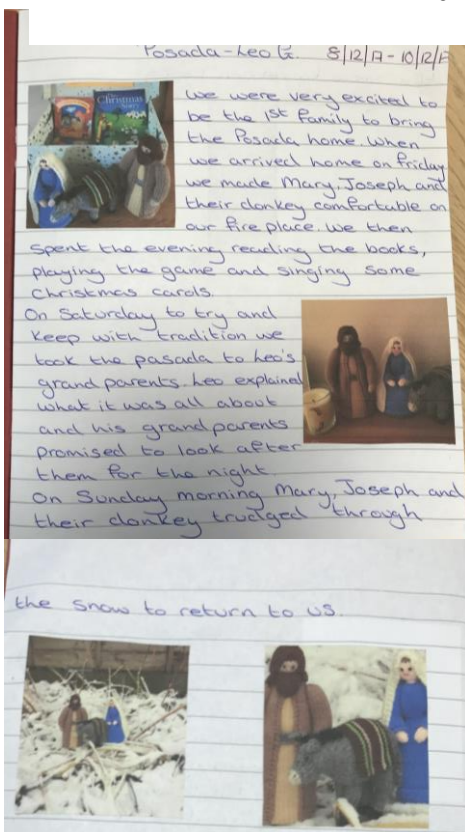 Posada-Leo G. 8/12/17-10/12/17
Christmas
We were very excited to
be the 1st family to bring
the Posada home. When
we arrived home on friday
we made Mary, Joseph and
their donkey comfortable on
our fire place. We then
spent the evening reading the books,
playing the game and singing some
Christmas carols.
On Saturday to try and
keep with tradition we
took the pasada to Leo's
grand parents. Leo explained
what it was all about
and his grandparents
promised to look after
them for the night.
On Sunday morning Mary, Joseph and
their donkey trudged through
the snow to return to us.